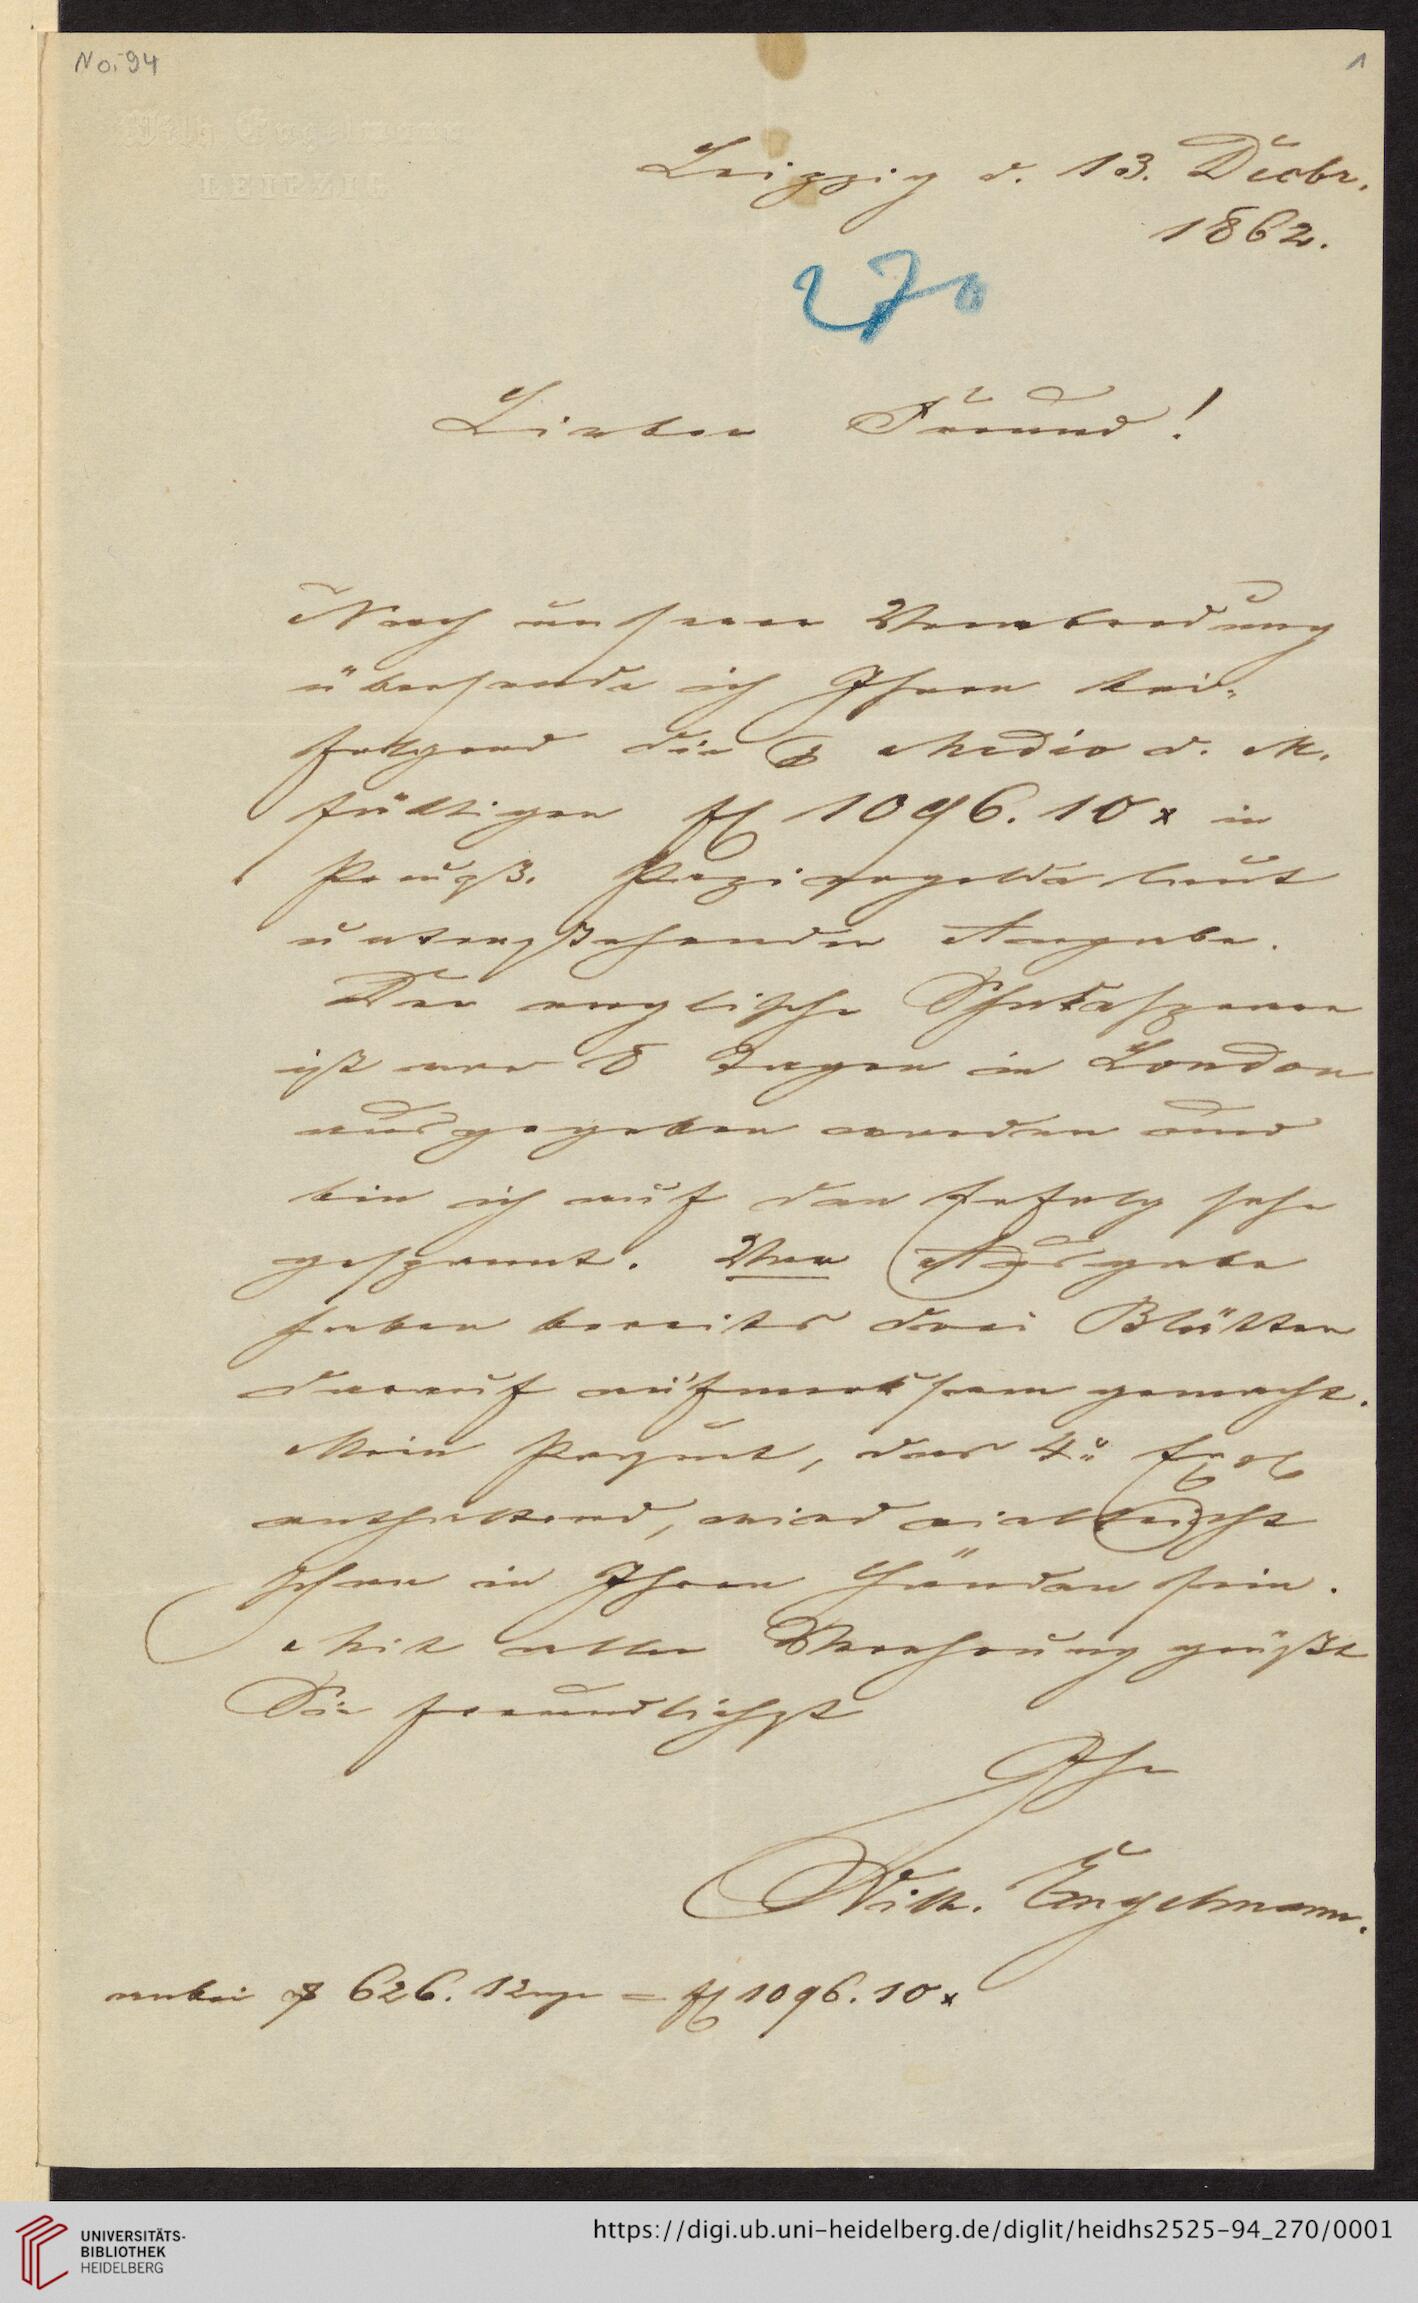 No. 94
1
Wilh Engelmann
LEIPZIG
Leipzig d. 13. Decbr.
1862.
270
Lieber Freund!
Nach unserer Verabredung
übersende ich Ihnen bei-
folgend die Medio d. M.
fälligen fl 1096. 10 x in
Preuß. Papiergelde laut
untenstehender Angabe.
Der englische Shakespeare
ist vor 8 Tagen in London
ausgegeben worden und
bin ich auf den Erfolg sehr
gespannt. Vor Ausgabe
haben bereits drei Blätter
darauf aufmerksam gemacht.
Mein Paquet, das 4
enthaltend, wird vielleicht
schon in Ihren Händen sein.
Mit aller Verehrung grüßt
Sie freundlichst
Ihr
Wilh. Engelmann.
anbei 626. 12 = fl 1096. 10 x
UNIVERSITÄTS-
BIBLIOTHEK
HEIDELBERG
https://digi.ub.uni-heidelberg.de/diglit/heidhs2525-94_270/0001